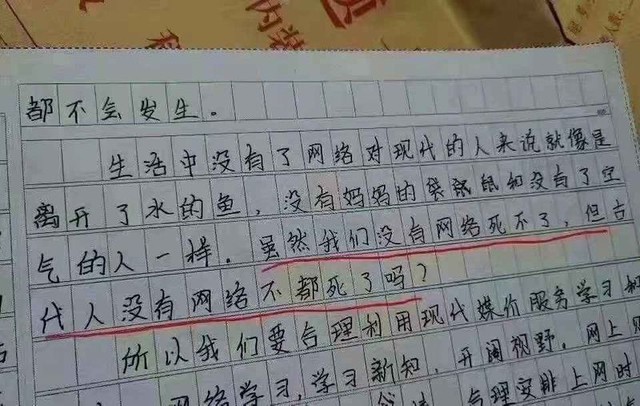 内装
都不会发生。
生活中没有了网络对现代的人来说就像是
离开了水的鱼，没有妈妈的袋鼠和没有了空
气的人一样。虽然我们没有网络死不了，但古
代人没有网络不都死了吗？
所以我们要合理利用现代媒价服务学习和
网络学习，学习新知，开阔视野。网上
合理安排上网时